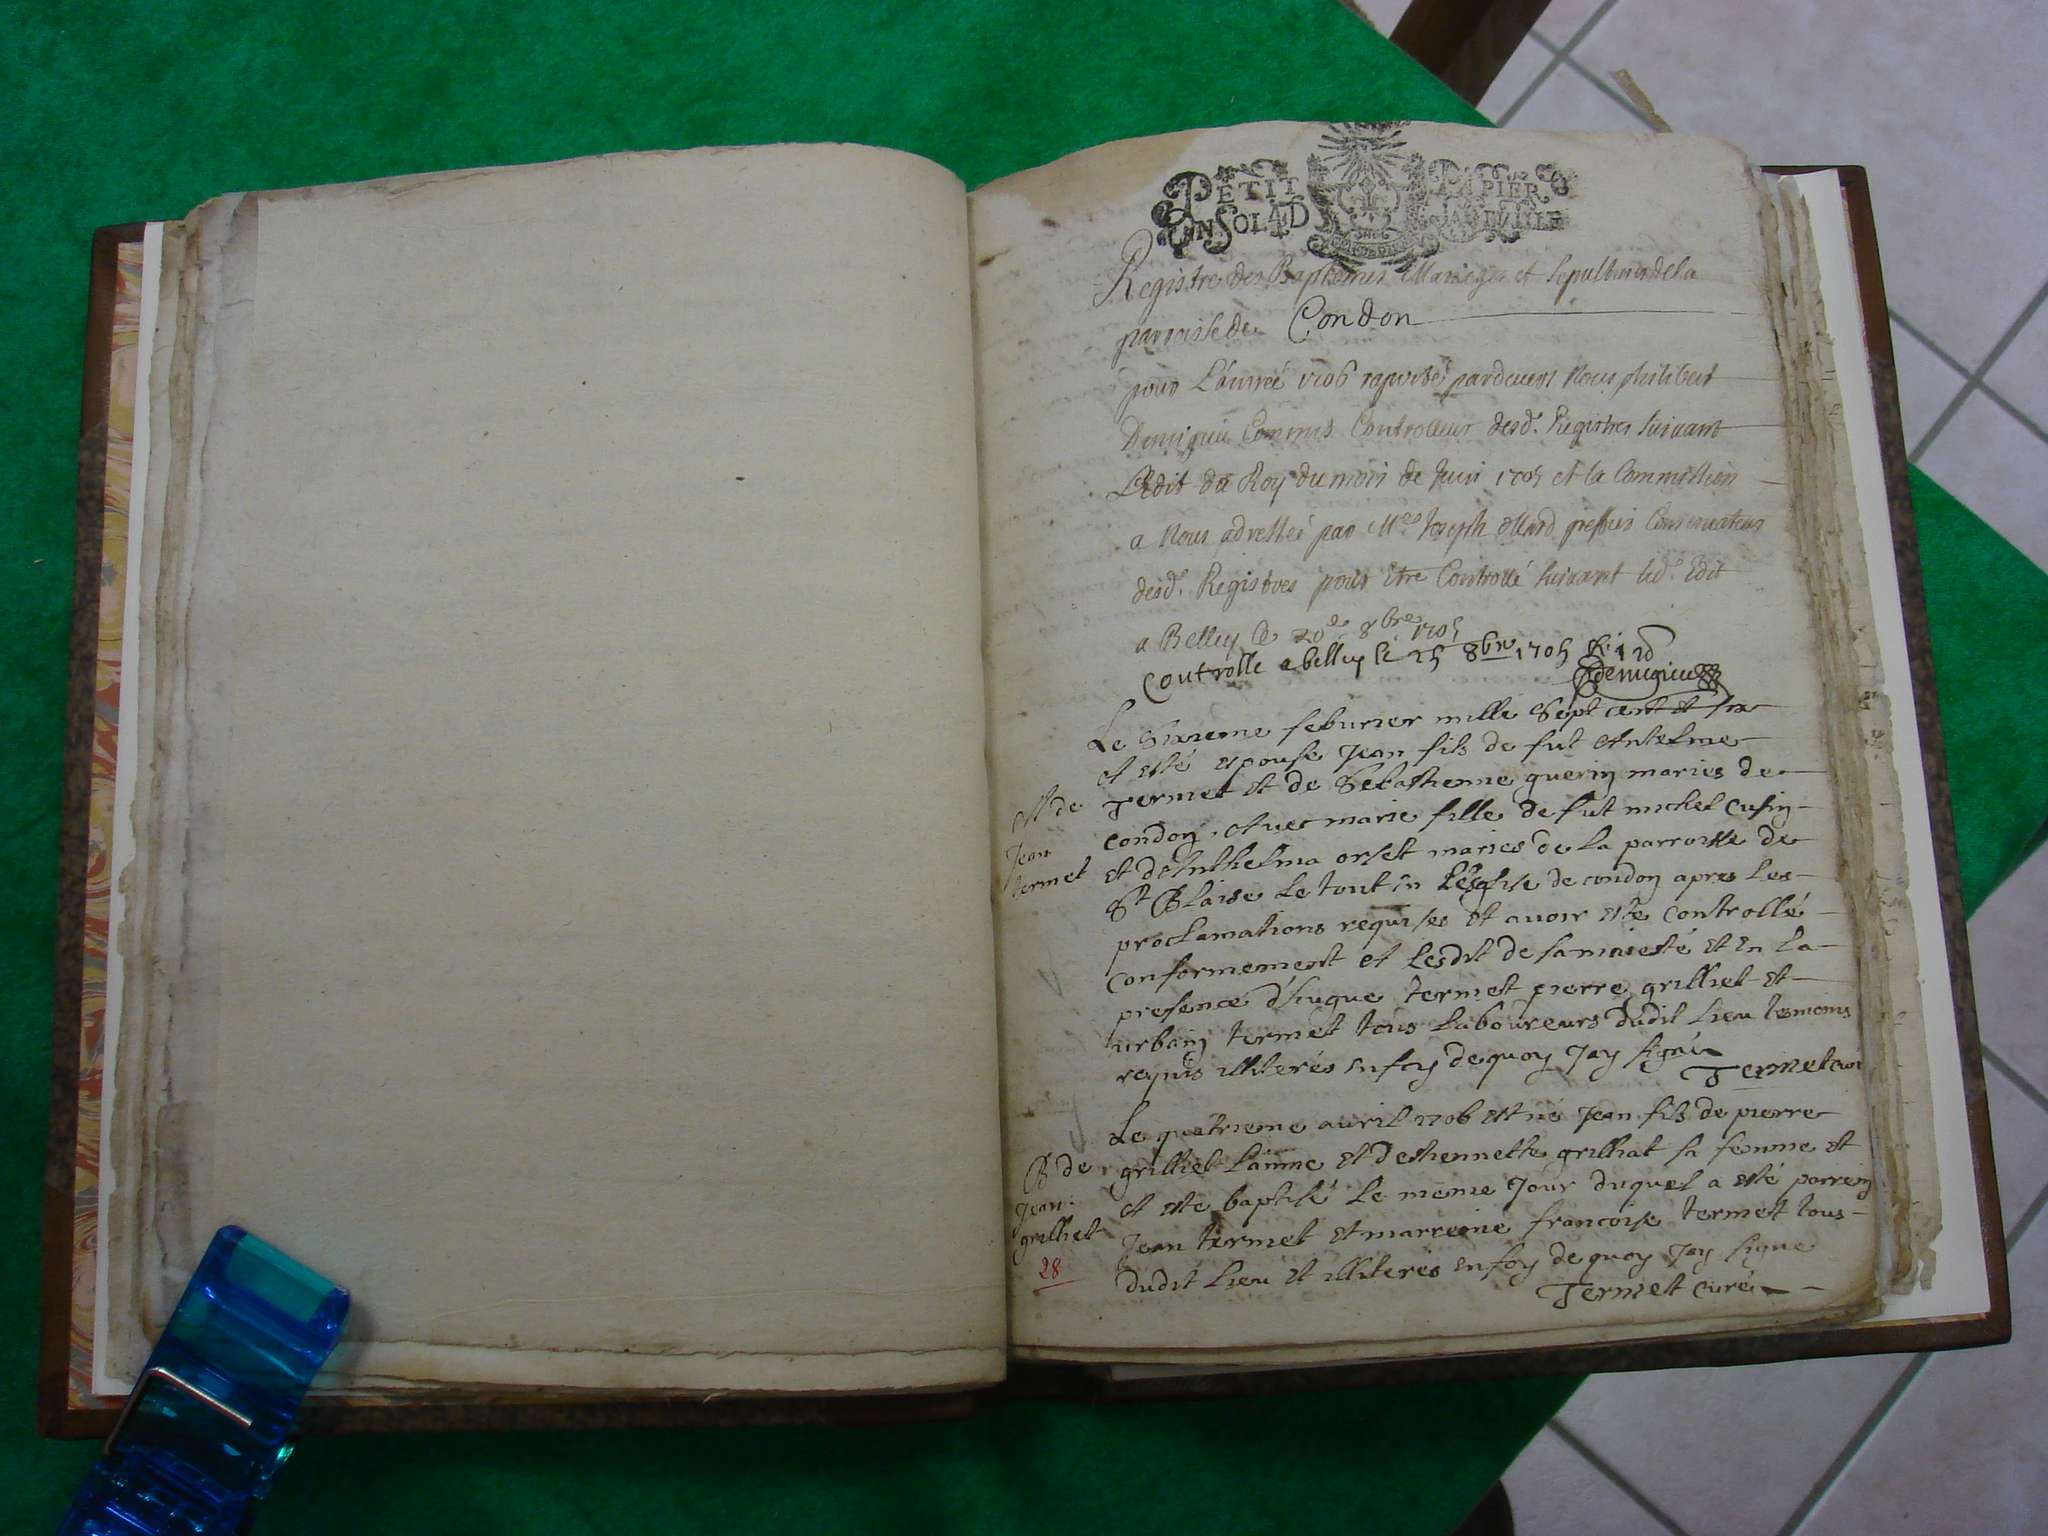 PETIT PAPIER
UN SOL 4D LA FEUILLE
Registre des Baptemes Mariages et sepultures de la
parroisse de Condon
pour L'année 1706 par devers Nous philibert
Commis Controlleur desd. Registres suivant
L'Edit du Roy du mois de Juin 1705 et la Commission
a Nous adressée par Mre Joseph greffier Conservateur
desd. Registres pour Etre Controllé suivant led. Edit
a Belley le 20e 8bre 1705
Controlle a belley le 25 8bre 1705
Demigieu
Le Sixieme feburier mille Sept cent et six
a esté espousé Jean fils de fut Antelme
M de
Termet et de Sebastienne guerin maries de
Jean
condon, Avec marie fille de fut michel cusin
termet
et d'Anthelma orset maries de la parroisse de
St Blaise le tout en L'eglise de condon apres les
proclamations requises et avoir esté controllé
conformement a L'esdit de sa maiesté et En la
presence d'huque termet pierre grilliet et
urbain termet tous laboureurs dudit lieu tesmoins
requis illiterés en foy de quoy Jay signé
Termet curé
Le quatrieme avril 1706 est né Jean fils de pierre
B de
grilliet Lainne et d'estiennette grilliat sa femme et
Jean
a esté baptisé le meme Jour duquel a esté parrein
grilliet
Jean termet et marreine francoise termet tous
28
dudit lieu et illiteres en foy de quoy Jay signe
Termet curé